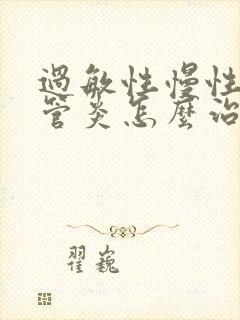 過敏性慢性
管炎怎麼治
翟巍